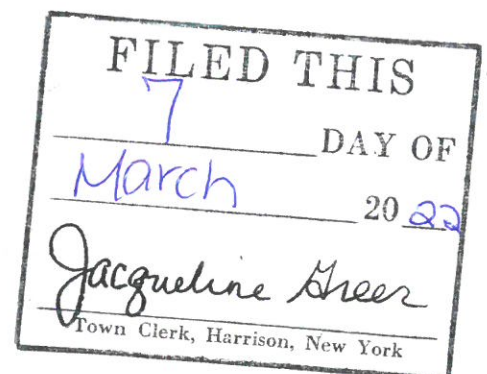 FILED THIS
7 DAY OF
March 20 22
Jacqueline Greer
Town Clerk, Harrison, New York